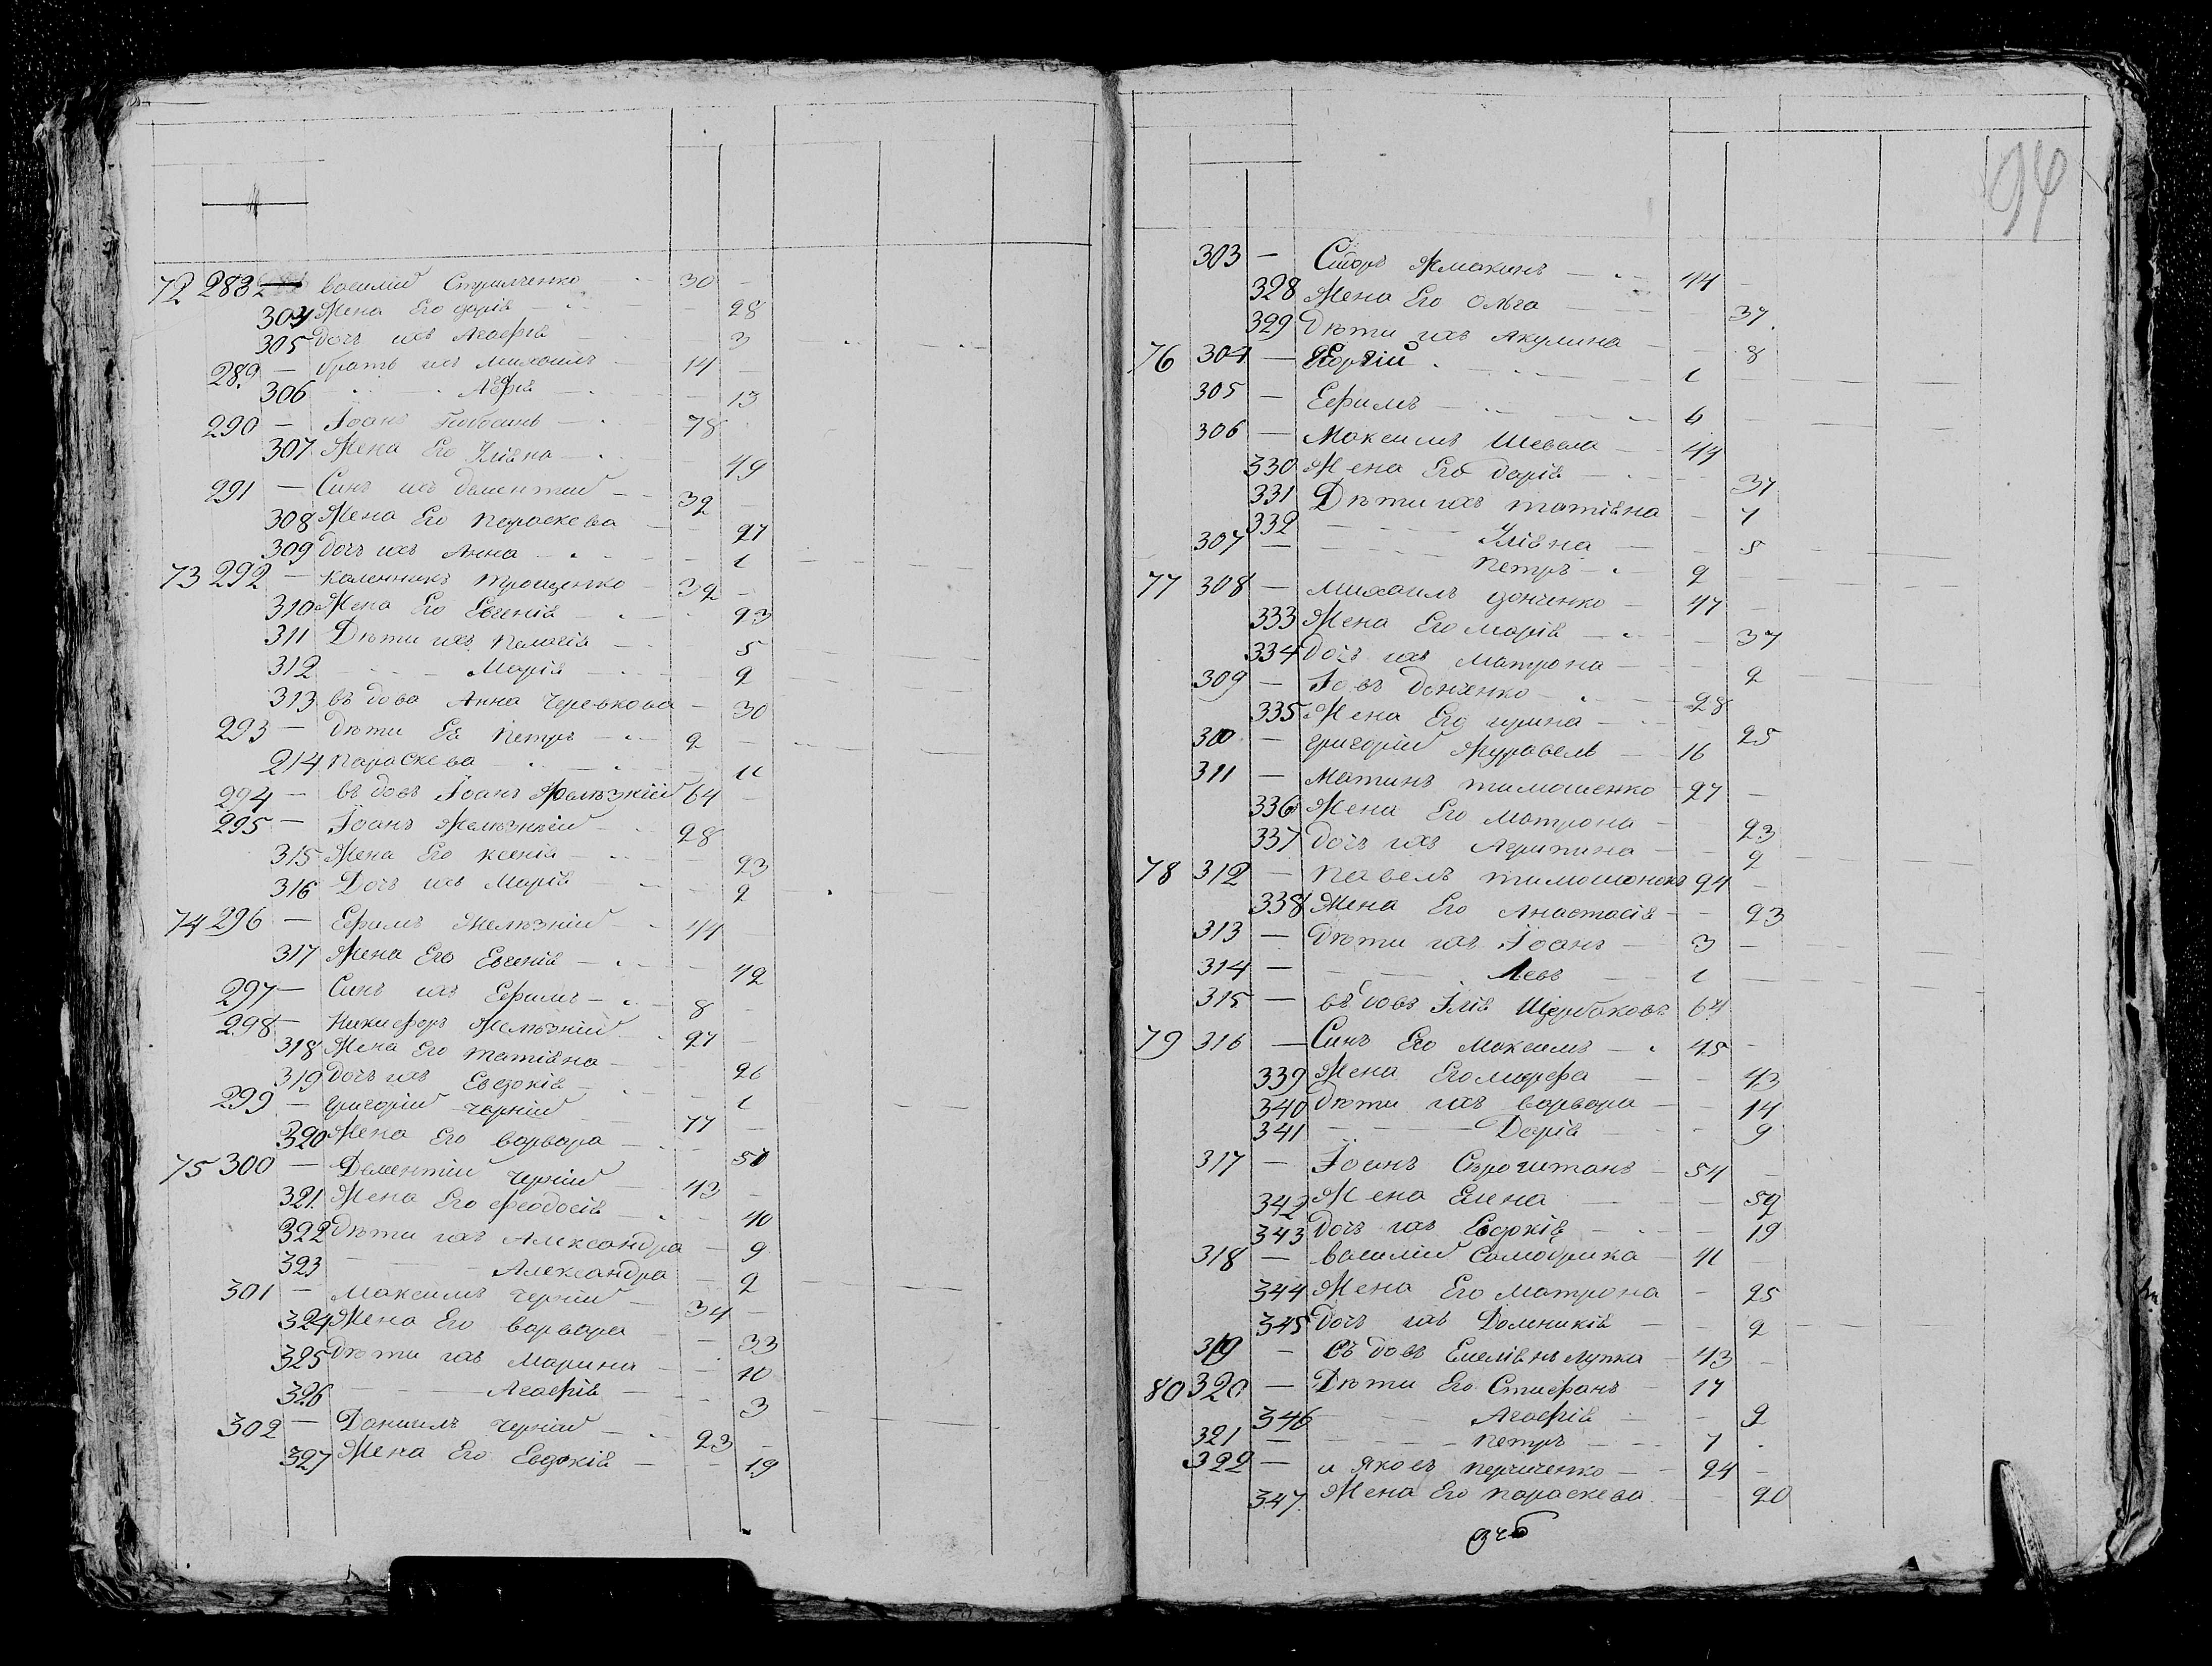 72 283 — василій Стрилченко — 30 —
304 Жена Его дарія — — 28
305 дочь ихъ Агафія — 3
289 — братъ ихъ михаилъ — 14 —
306 — — — 13
290 — Іоанъ — 78
307 Жена Его Уліяна — — 49
291 — Синъ ихъ дементий — 32 —
308 Жена Его параскева — — 27
309 дочъ ихъ Анна — — 1
73 292 — каленникъ трощенко — 32 —
310 Жена Его Евгенія — — 23
311 Дѣти ихъ пелагія — — 5
312 — — Марія — — 2
313 въдова Анна Черевкова — 30
293 — дѣти Ея петръ — 9 —
214 параскева — — 11
294 — въдовъ Іоанъ Желѣзній 64 —
295 — Іоанъ Желѣзній — 28
315 Жена Его ксенія — — 23
316 Дочъ ихъ Марія — — 2
74 296 — Ефимъ Желѣзній — 44 —
317 Жена Его Евгенія — — 42
297 — Синъ ихъ Ефимъ — 8 —
298 — Никифоръ Желѣзній — 27
318 Жена Его татіяна — — 26
319 дочъ ихъ Евдокія — — 1
299 — григорій чорній — 77 —
320 Жена Его варвара — — 51
75 300 — Дементій чорній — 43 —
321 Жена Его феодосія — — 40
322 Дѣти ихъ Александра — 9
323 — — Александра — 2
301 — максимъ чорній — 34 —
324 Жена Его варвара — — 33
325 дѣти ихъ Марина — — 10
326 — — Агафія — — 3
302 — Даниилъ чорній — 23 —
327 Жена Его Евдокія — — 19
94
303 — — 44 —
328 Жена Его Олга — — 37
329 Дѣти ихъ Акулина — — 8
76 304 — Георгій — — 1
305 — Ефимъ — — 6
306 — Максимъ Шевела — 44
330 Жена Его дарія — — 37
331 Дѣти ихъ татіяна — 7
332 — — Уліяна — — 5
307 — — петръ — 2
77 308 — михаилъ донченко — 47 —
333 Жена Его марія — — 37
334 дочъ ихъ Матрона — — 2
309 — Іовъ Донченко — — 28
335 Жена Его ирина — — 25
310 — григорій Журавель — 16
311 — Матинъ тимошенко — 27 —
336 Жена Его Матрона — 23
337 дочъ ихъ Агрипина — — 2
78 312 — павелъ тимошонокъ 24 —
338 Жена Его Анастасія — — 23
313 — Дѣти ихъ Іоанъ — 3 —
314 — — Левъ — 1 —
315 — въдовъ Ілія Щербаковъ 64
79 316 — Синъ Его Максимъ — 45 —
339 Жена Его марфа — — 43
340 Дѣти ихъ варвара — — 14
341 — — Дарія — — 9
317 — Іоанъ Сѣроштанъ — 54 —
342 Жена Елена — — 52
343 Дочъ ихъ Евдокія — — 19
318 — василій Самобрика — 41 —
344 Жена Его Матрона — 25
345 Дочъ ихъ Домникія — — 2
319 — въдовъ лупка — 43 —
80 320 — Дѣти Его Стифанъ — 17
346 — — Агафія — — 9
321 — — петръ — 7
322 — и яковъ — 24 —
347 Жена Его параскева — — 20